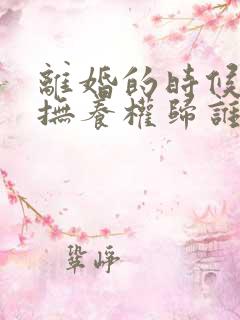 離婚的時候
撫養權歸誰
鞏崢